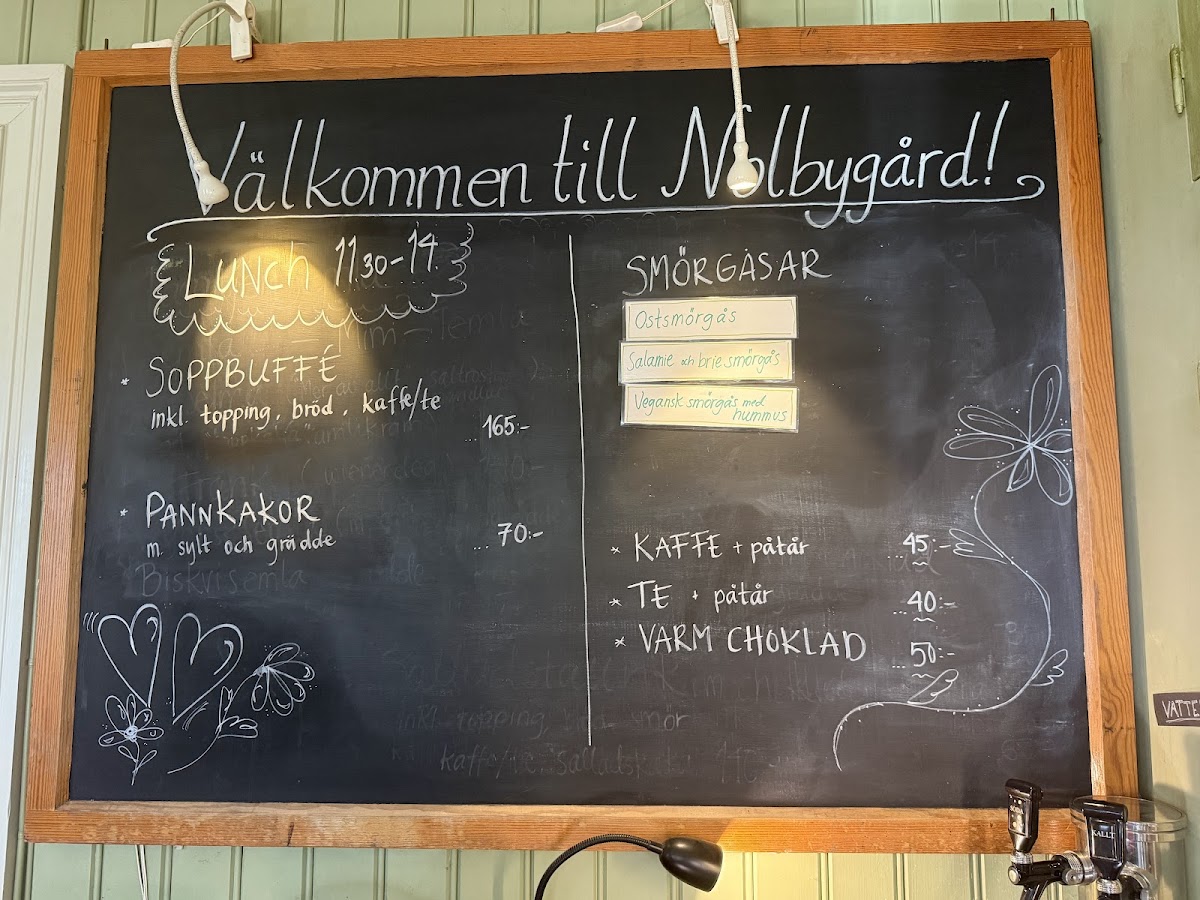 Välkommen till Nolbygård!
LUNCH 11.30-14.
* SOPPBUFFÉ
inkl. topping, bröd, kaffe/te
...165:-
* PANNKAKOR
m. sylt och grädde
...70:-
Biskvisemla
SMÖRGÅSAR
Ostsmörgås
Salamie och brie smörgås
Vegansk smörgås med
hummus
* KAFFE + påtår ...45:-
* TE + påtår ...40:-
* VARM CHOKLAD ...50:-
inkl topping
kaffe/te, sallad
KALLT